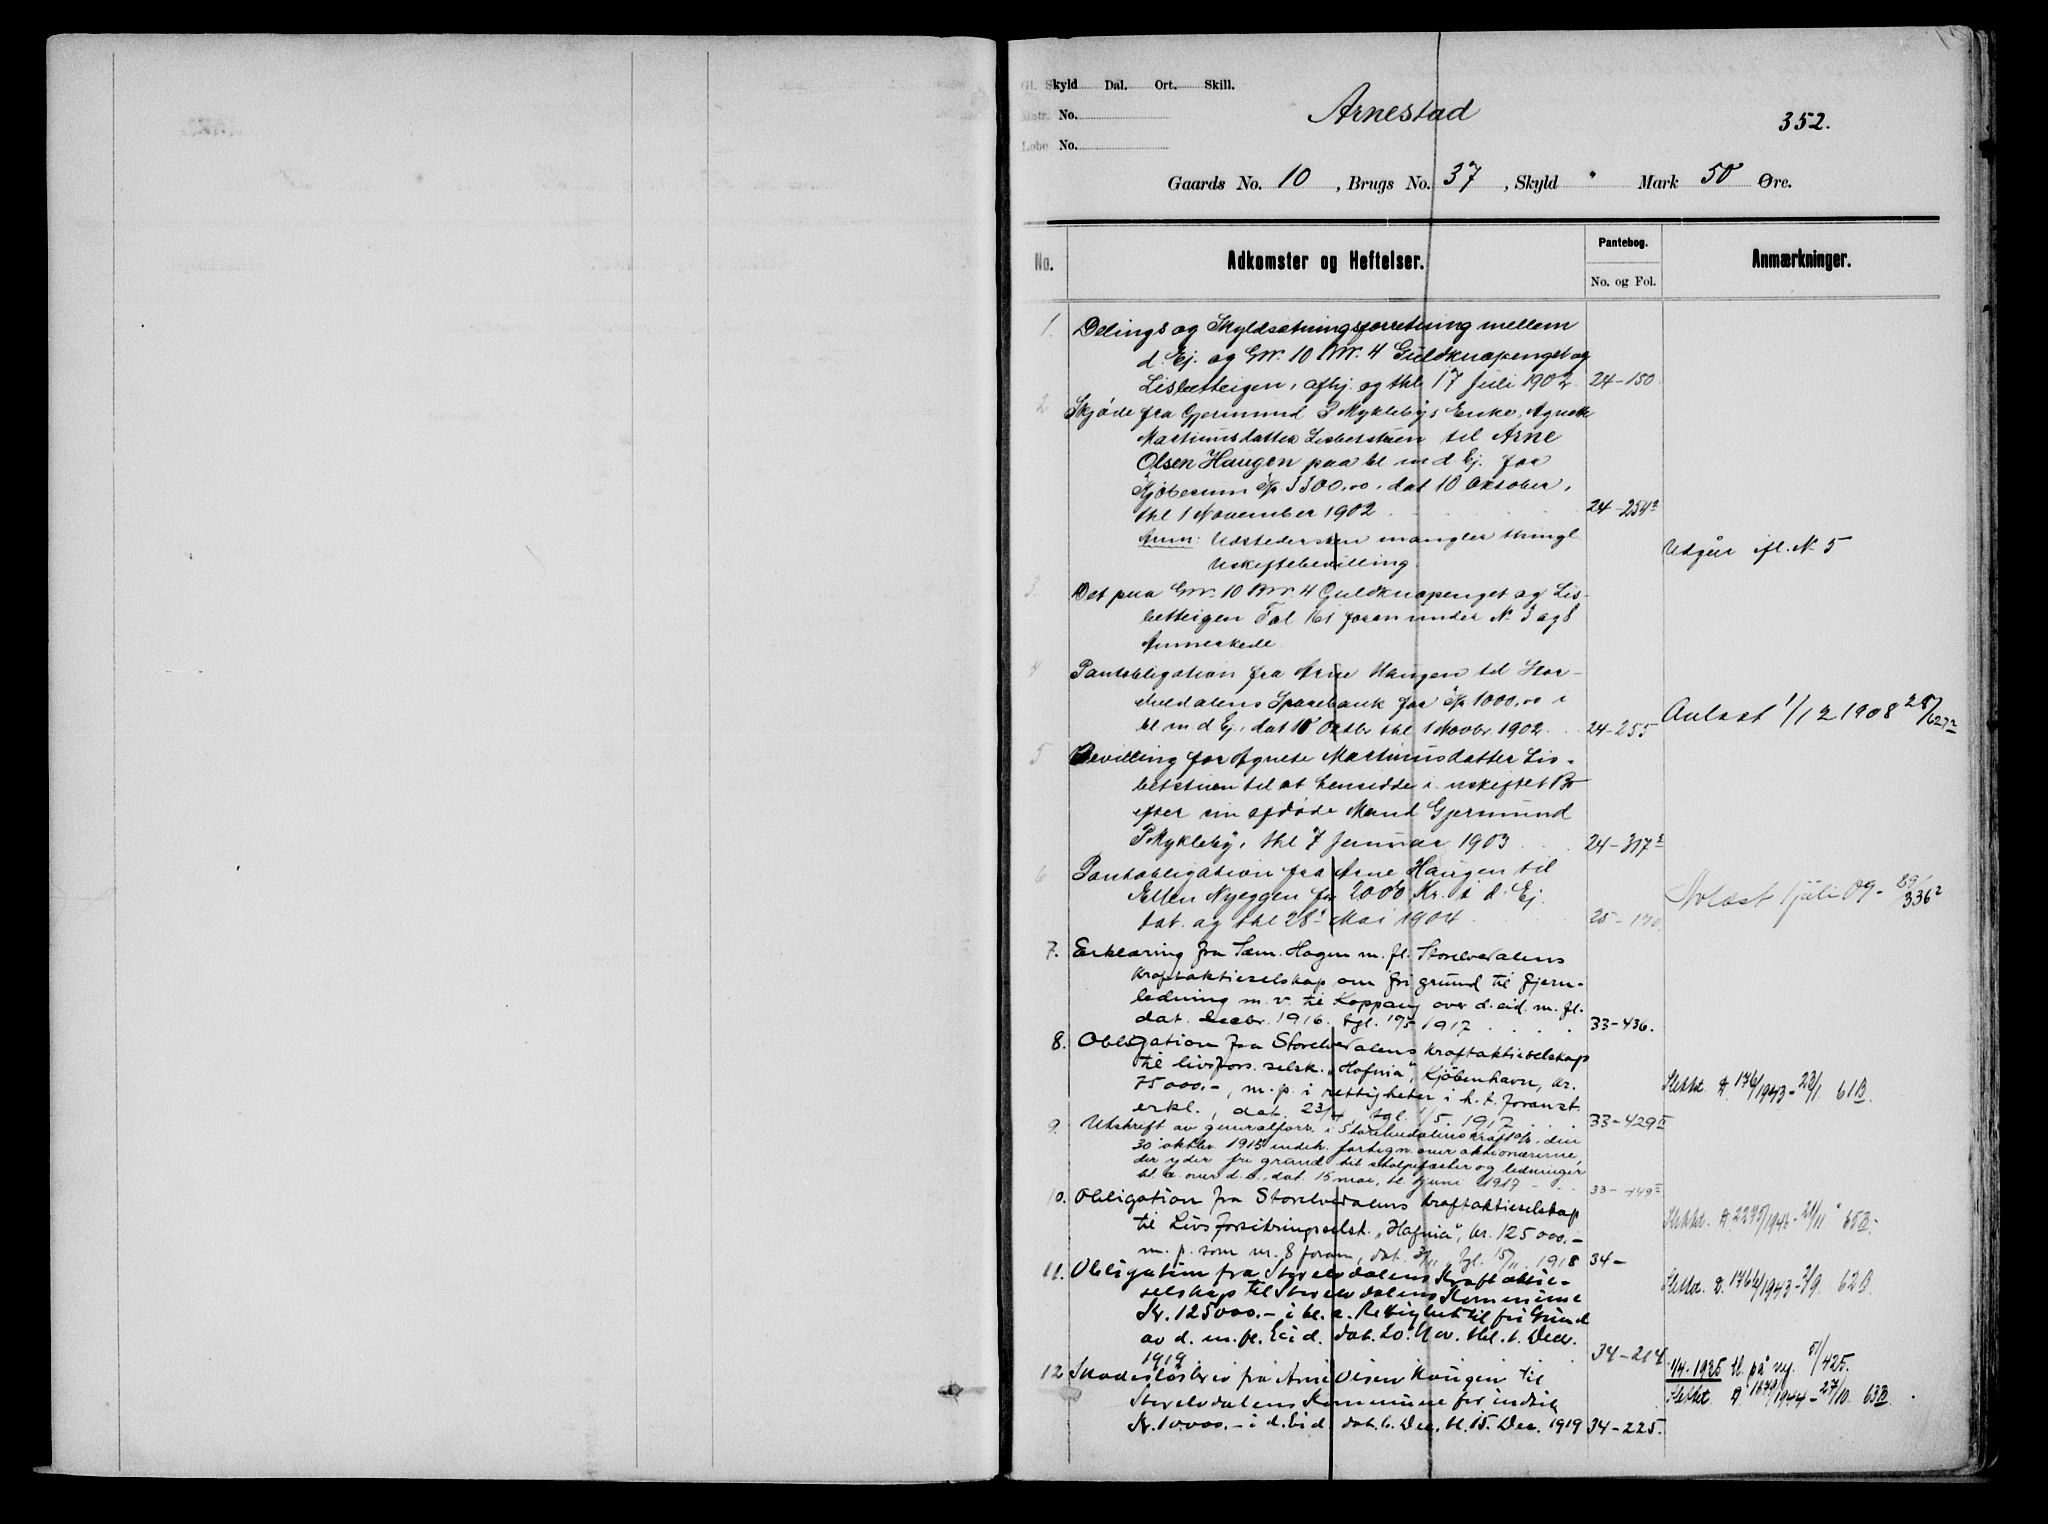 Gl. Skyld Dal. Ort. Skill.
Matr. No.
Løbe No.
Arnestad
352.
Gaards No. 10, Brugs No. 37, Skyld " Mark 50 Øre.
No. Adkomster og Heftelser. Pantebog. No. og Fol. Anmærkninger.
1. Delings og Skyldsætningsforretning mellem
d. Ej. og Gnr. 10 Bnr. 4 Guldknapenget og
Lisbetteigen, afhj. og thl. 17 Juli 1902. 24-150
2 Skjøde fra Gjermund P Myklebys Enke, Agnete
Martinusdatter Lisbetstuen til Arne
Olsen Haugen paa bl m d Ej. for
Kjøbesum Kr 3300,00, dat 10 Oktober,
thl 1 November 1902 24-254²
Anm: Udstedersken mangler thingl.
Uskiftebevilling.
Udgår ifl. N. 5
3. Det paa Gnr. 10 Bnr. 4 Guldknapenget og Lis-
betteigen Fol 161 foran under No 3 og 8
Anmerkede
4 Pantobligation fra Arne Haugen til Stor-
elvedalens Sparebank for Kr 1000,00 i
bl. m d Ej, dat 10 Oktbr thl 1 Novbr 1902. 24-255
Avlæst 1/12 1908 28/627²
5 Bevilling for Agnete Martinusdatter Lis-
betstuen til at hensidde i uskiftet Bo
efter sin afdøde Mand Gjermund
P Mykleby, thl 7 Januar 1903 24-317²
6 Pantobligation fra Arne Haugen til
Ellen Nyeggen for 2000 Kr. i d. Ej.
dat. og thl 28. Mai 1904 25-170
Avlæst 1 juli 09- 336²
7. Erklæring fra Sæm. Hagen m. fl. Storelvedalens
kraftaktieselskap om fri grund til fjern-
ledning m. v. til Koppang over d. eid. m. fl.
dat. decbr. 1916. tgl. 1/5 1917 33-436.
8. Obligation fra Storelvedalens kraftaktieselskap
til livsfors. selsk. „Hafnia", Kjøbenhavn, kr.
75000.-, m. p. i rettigheter i h. t. foranst.
erkl., dat. 23/4, tgl. 1/5. 1917 33-429II
Slettet D 176/1943-23/1 61B.
9. Utskrift av generalforv. i Storelvedalens kraftak., den
30 oktbr. 1915 indeh. fortegn. over aktionærerne
der yder fri grund til stolpefæster og ledninger
bl. a. over d. e., dat. 15 mai, tl. 1 juni 1917 33-449II
10. Obligation fra Storelvedalens kraftaktieselskap
til Livsforsikringselsk. „Hafnia", kr. 125000.-
m. p. som nr. 8 foran, dat. 3/11, tgl. 15/11. 1918 34-
11. Obligation fra Storelvdalens Kraftaktie-
selskap til Storelvdalens Kommune
Kr. 125000.- i bl. a. Rettighet til fri Grund
av d. m. fl. Eid. dat. 20. Nov. thl. 1. Decr.
1919 34-214
Slettet D. 1766/1943-3/9. 62B.
12 Skadesløsbrev fra Arne Olsen Haugen til
Storelvdalens Kommune for indtil
Kr. 10000.- i d. Eid. dat. 6. Dec. tl. 15. Dec. 1919 34-225.
1/4-1925 tl. på ny. 51/425.
Slettet D 1679/1944-27/10. 63B.